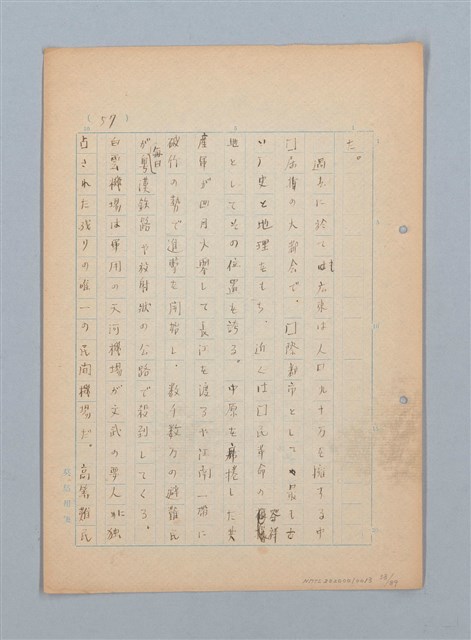 (57)
た。
過去に於ても広東は人口九十万を擁する中
□屈指の大都会で、□際都市としても最も古
い歴史と地理をもち、近くは□民革命の発祥
地としてその位置を誇る。中原を席捲した共
産軍が四月大挙して長江を渡るや江南一帯に
破竹の勢で進撃を開始し、数千数万の避難民
が毎日粤漢鉄路や放射状の公路で殺到してくる。
白雲機場は軍用の天河機場が文武の要人に独
占された残りの唯一の民間機場だ。高等難民